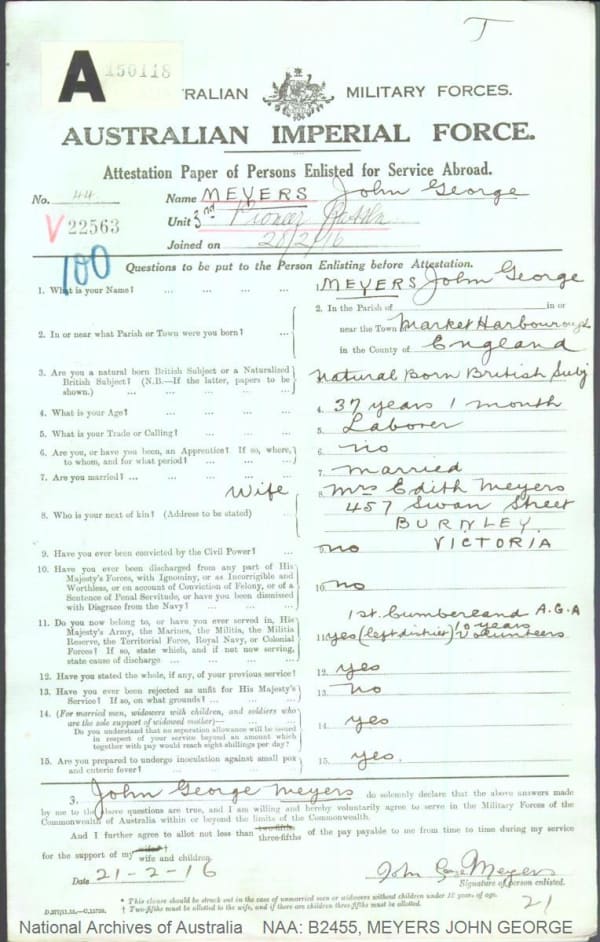 T
A 150118
TRALIAN MILITARY FORCES.
AUSTRALIAN IMPERIAL FORCE.
Attestation Paper of Persons Enlisted for Service Abroad.
No. 44 Name MEYERS John George
V 22563 Unit 3rd Pioneer Battln
Joined on 28/2/16
100
Questions to be put to the Person Enlisting before Attestation.
1. What is your Name? ... ... ... ... 1. MEYERS John George
2. In or near what Parish or Town were you born? ... 2. In the Parish of in or
near the Town Market Harbourough
in the County of England
3. Are you a natural born British Subject or a Naturalized British Subject? (N.B.—If the latter, papers to be shown.) ... ... ... ... Natural Born British Subj
4. What is your Age? ... ... ... ... 4. 37 years 1 month
5. What is your Trade or Calling? ... ... ... 5. Laborer
6. Are you, or have you been, an Apprentice? If so, where, to whom, and for what period? ... ... ... 6. no
7. Are you married? ... ... ... ... 7. married
Wife 8. Mrs Edith Meyers
8. Who is your next of kin? (Address to be stated) ... 457 Swan Street
BURNLEY.
9. Have you ever been convicted by the Civil Power? ... 9. no VICTORIA
10. Have you ever been discharged from any part of His
Majesty's Forces, with Ignominy, or as Incorrigible and
Worthless, or on account of Conviction of Felony, or of a
Sentence of Penal Servitude, or have you been dismissed
with Disgrace from the Navy? ... ... ... 10. no
11. Do you now belong to, or have you ever served in, His
Majesty's Army, the Marines, the Militia, the Militia
Reserve, the Territorial Force, Royal Navy, or Colonial
Forces? If so, state which, and if not now serving,
state cause of discharge ... ... ... ...
1st Cumberland A.G.A
10 years
11. yes (left district) Volunteers
12. Have you stated the whole, if any, of your previous service? 12. yes
13. Have you ever been rejected as unfit for His Majesty's
Service? If so, on what grounds? ... ... ... 13. no
14. (For married men, widowers with children, and soldiers who
are the sole support of widowed mother)— ... ...
Do you understand that no separation allowance will be issued
in respect of your service beyond an amount which
together with pay would reach eight shillings per day? 14. yes
15. Are you prepared to undergo inoculation against small pox
and enteric fever? ... ... ... ... 15. yes.
3. John George Meyers do solemnly declare that the above answers made
by me to the above questions are true, and I am willing and hereby voluntarily agree to serve in the Military Forces of the
Commonwealth of Australia within or beyond the limits of the Commonwealth.
And I further agree to allot not less than two-fifths three-fifths of the pay payable to me from time to time during my service
for the support of my wife and children.
Date 21-2-16
John George Meyers
Signature of person enlisted.
21
* This clause should be struck out in the case of unmarried men or widowers without children under 18 years of age.
† Two-fifths must be allotted to the wife, and if there are children three-fifths must be allotted.
National Archives of Australia NAA: B2455, MEYERS JOHN GEORGE